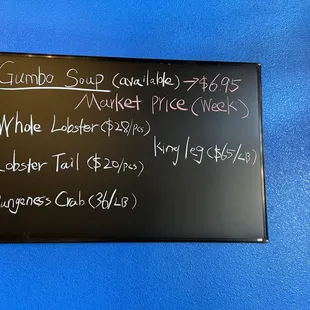 Gumbo Soup (available) → $695
Market Price (Week)
Whole Lobster ($28/pcs)
King leg ($65/LB)
Lobster Tail ($20/pcs)
Dungeness Crab (36/LB)